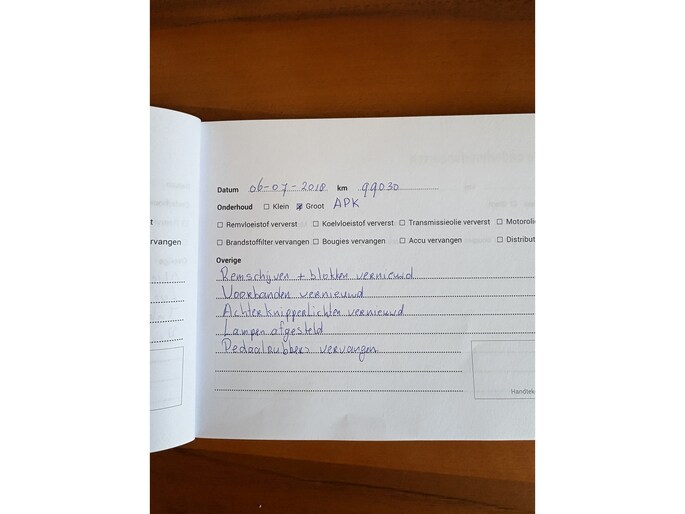 Datum 06-07-2018 km 99030
Onderhoud Klein Groot APK
Remvloeistof ververst Koelvloeistof ververst Transmissieolie ververst Motoroli
Brandstoffilter vervangen Bougies vervangen Accu vervangen Distribut
Overige
Remschijven + blokken vernieuwd
Voorbanden vernieuwd
Achterknipperlichten vernieuwd
Lampen afgesteld
Pedaalrubbers vervangen
Handtek
t
rvangen